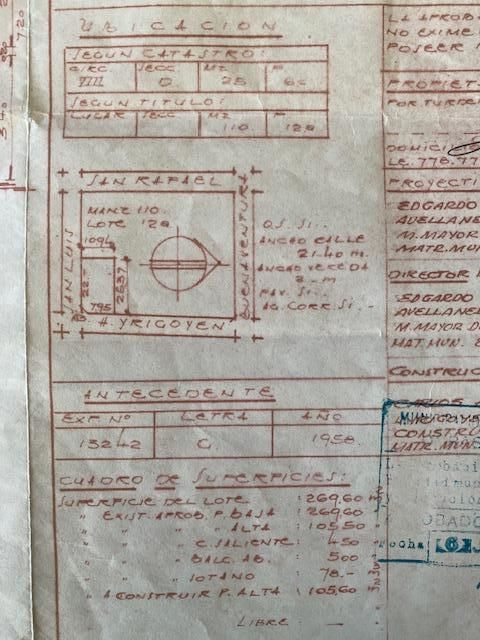 UBICACION
SEGUN CATASTRO:
CIRC. SECC MZ P
VIII D 25 6c
SEGUN TITULO:
LUGAR SECC MZ P
110 12a
SAN RAFAEL
SAN LUIS
BUENAVENTURA
H. YRIGOYEN
MANZ 110
LOTE 12a
1094
2637
795
O.S. SI..
ANCHO CALLE
21.40 m.
ANCHO VEREDA
PAV. SI..
AG. CORR. SI. -
ANTECEDENTE
EXP. Nº LETRA AÑO
13242 C. 1958
CUADRO DE SUPERFICIES:
SUPERFICIE DEL LOTE : 269,60
" EXIST. APROB. P. BAJA : 269,60
" " " ALTA : 105,50
" " " C. SALIENTE : 450
" " " BALC. AB. : 500
" " " SOTANO : 78.-
" A CONSTRUIR P. ALTA : 105,60
LIBRE -
LA APROB
NO EXIME
POSEER
PROPIET
DOMICI
LE. 778.77
PROYECTI
EDGARDO
AVELLANE
M. MAYOR
MATR. MUN
DIRECTOR
EDGARDO
AVELLANE
M. MAYOR D
MAT. MUN.
CONSTRUC
CARLOS
CONSTRU
MATR. MUN
OBADO
Fecha
7.20
3.40